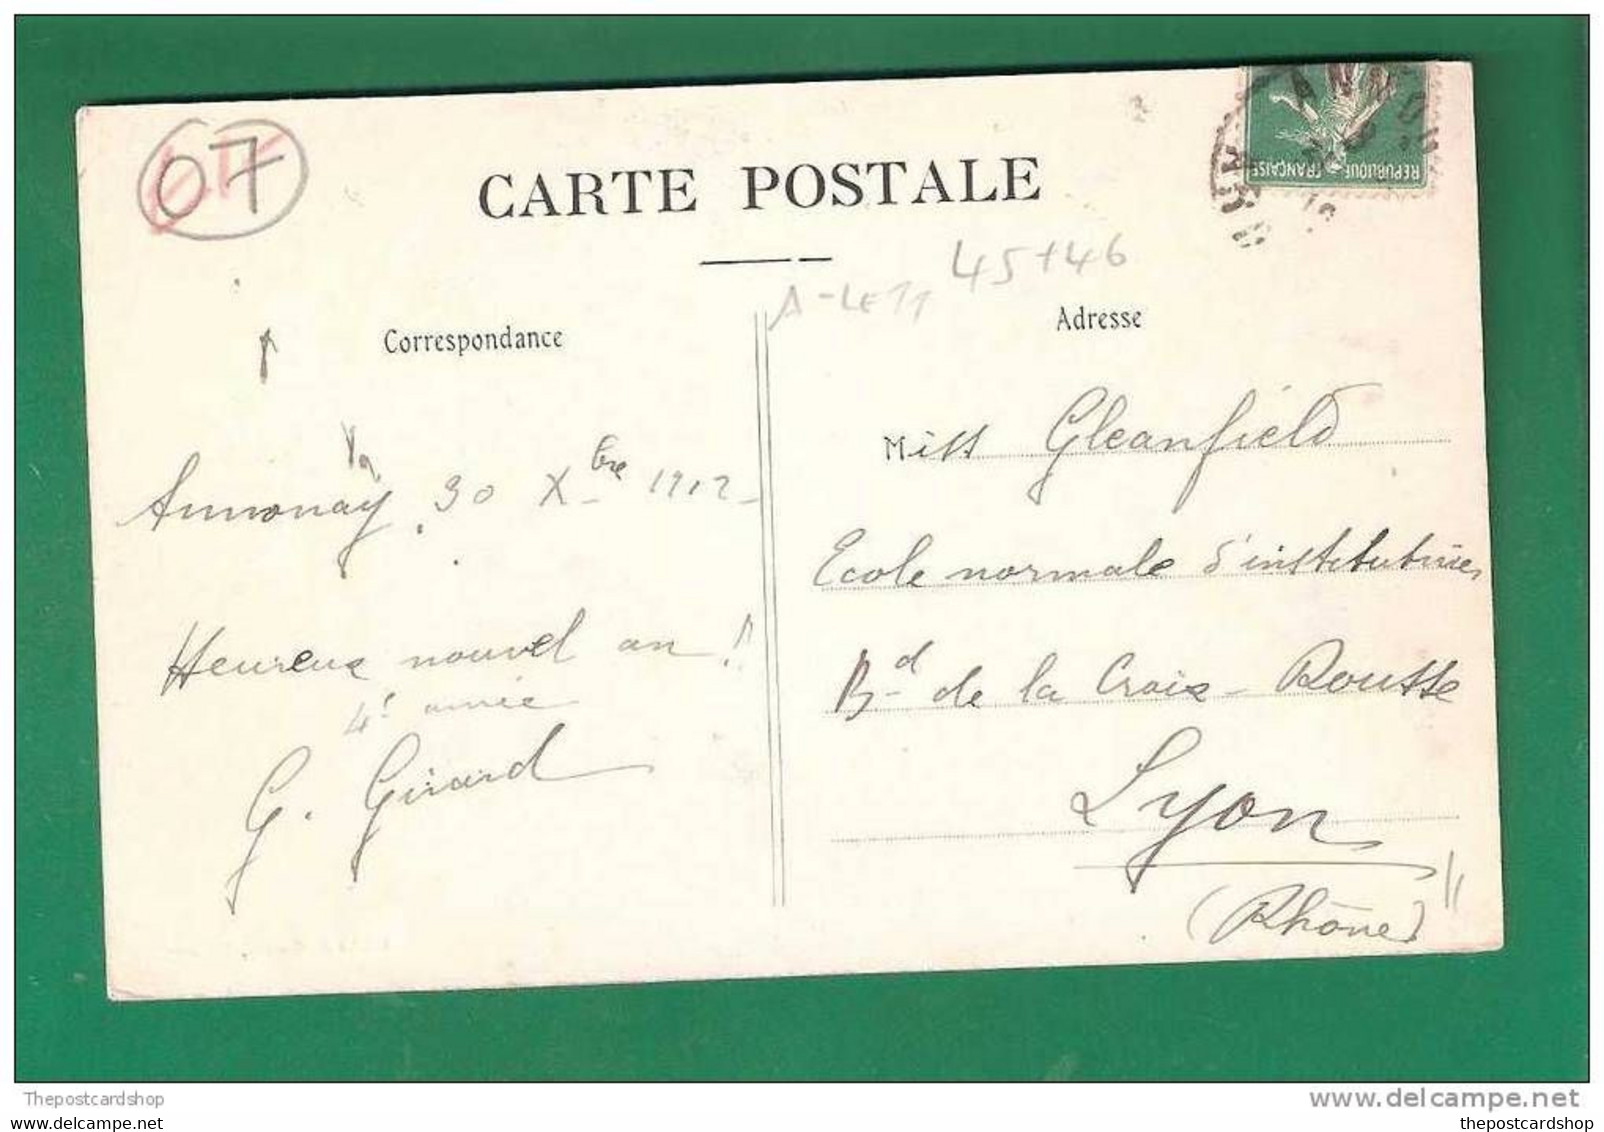 07
CARTE POSTALE
45+46
Correspondance
Adresse
REPUBLIQUE FRANÇAISE
Annonay 30 Xbre 1912
Heureux nouvel an !!
4e année
G. Girard
Miss Gleanfield
Ecole normale d'institutrices
Bd de la Croix-Rousse
Lyon
(Rhône)
Thepostcardshop
www.delcampe.net
thepostcardshop